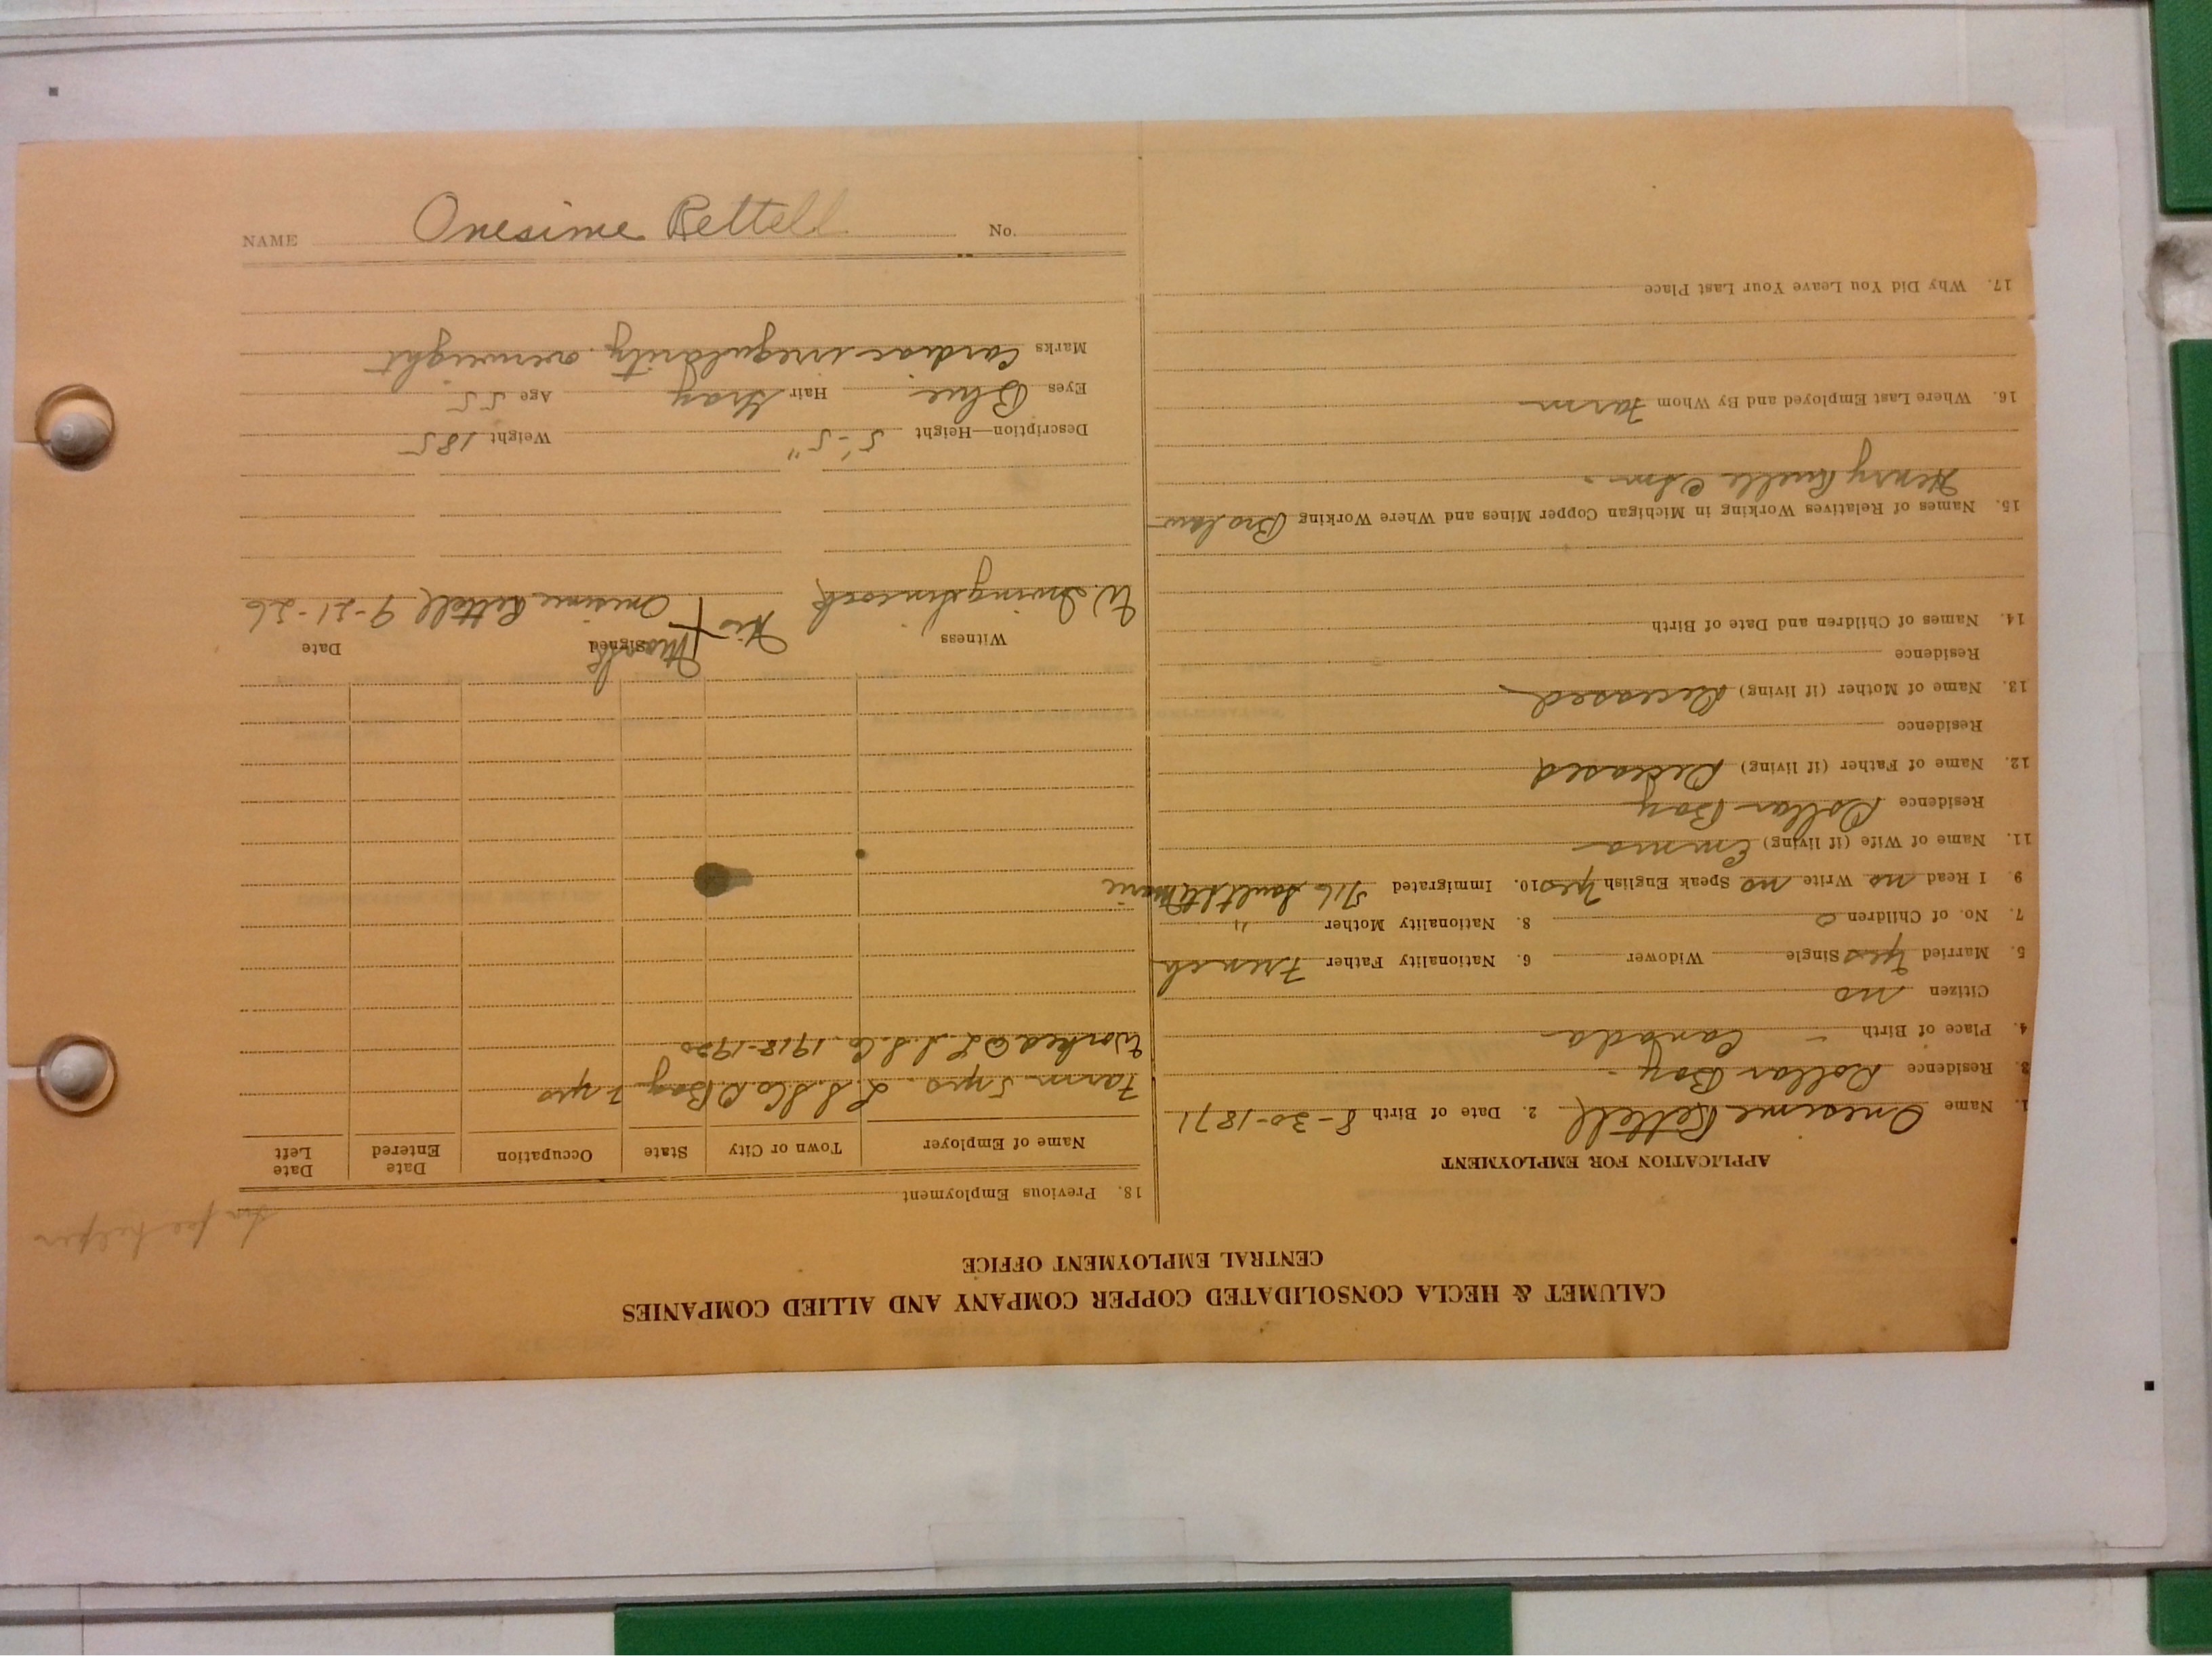 CALUMET & HECLA CONSOLIDATED COPPER COMPANY AND ALLIED COMPANIES
CENTRAL EMPLOYMENT OFFICE
APPLICATION FOR EMPLOYMENT
1. Name Onesime Rettell 2. Date of Birth 8-30-1871
3. Residence Dollar Bay
4. Place of Birth Canada
Citizen no
5. Married yes Single Widower 6. Nationality Father French
7. No. of Children 0 8. Nationality Mother "
9. I Read no Write no Speak English yes 10. Immigrated Sault Ste Marie
11. Name of Wife (if living) Emma
Residence Dollar Bay
12. Name of Father (if living) Deceased
Residence
13. Name of Mother (if living) Deceased
Residence
14. Names of Children and Date of Birth
15. Names of Relatives Working in Michigan Copper Mines and Where Working Bro law
Henry Ruelle
16. Where Last Employed and By Whom Farm
17. Why Did You Leave Your Last Place
helper
18. Previous Employment
Name of Employer Town or City State Occupation Date Entered Date Left
Farm 5 yrs. L.S.S.Co D. Bay 7 yrs
Worked @ L.S.S.Co. 1918-1920
Witness Signed Date
W. Irving His X Mark Onesime Rettell 9-21-26
Description—Height 5'-5" Weight 185
Eyes Blue Hair Gray Age 55
Marks Cardiac irregularity. overweight
NAME Onesime Rettell No.